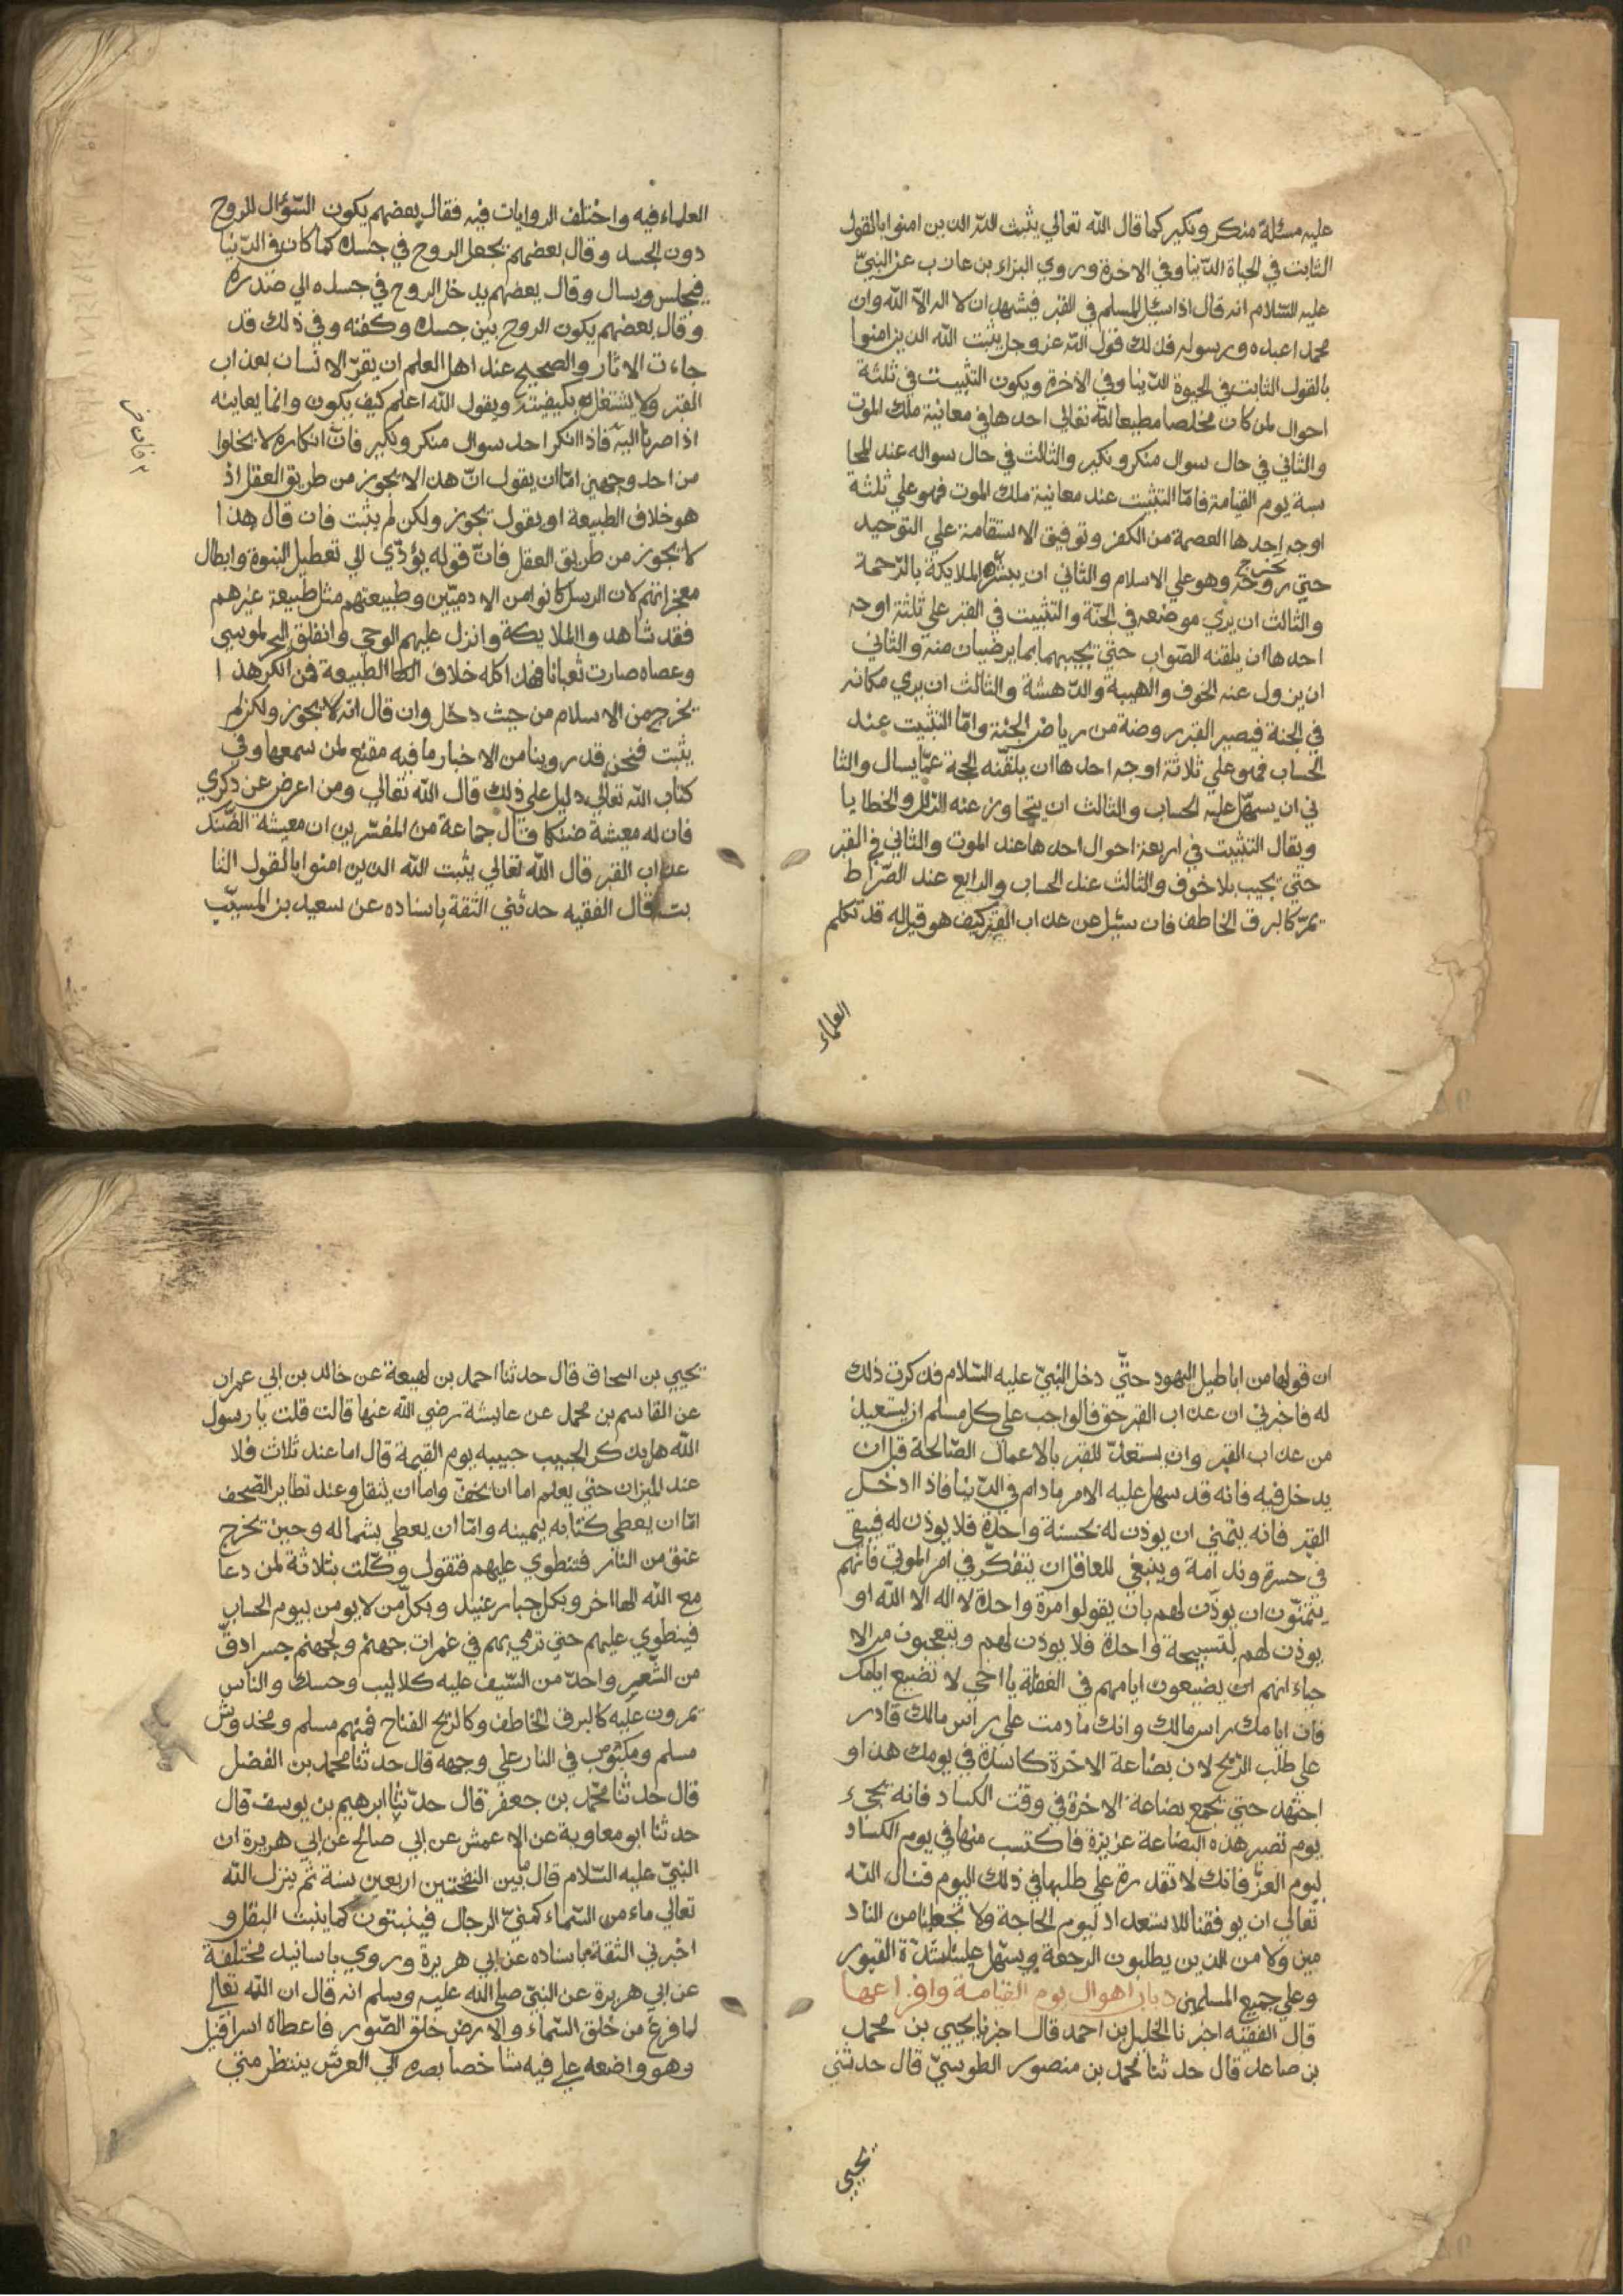 عليه مسئلة منكر ونكير كما قال الله تعالي يثبت الله الذين امنوا بالقول
الثابت في الحياة الدّنيا وفي الاخرة وروي البزاء بن عازب عن النبيّ
عليه السّلام انه قال اذا سئل المسلم في القبر فيشهد ان لا اله الاّ الله وان
محمدا عبده ورسوله فذلك قول الله عز وجل يثبت الله الذين امنوا
بالقول الثابت في الحيوة الدّنيا وفي الآخرة ويكون التثبيت في ثلثة
احوال لمن كان مخلصا مطيعا لله تعالي احدها في معانية ملك الموت
والثاني في حال سوال منكر ونكير والثالث في حال سواله عند المحا
سبة يوم القيامة فامّا التثبيت عند معانية ملك الموت فهو علي ثلثة
اوجه احدها العصمة من الكفر وتوفيق الاستقامة علي التوحيد
حتي تخرج روحه وهو علي الاسلام والثاني ان يبشّره الملايكة بالرّحمة
والثالث ان يري موضعه في الجنّة والتثبيت في القبر علي ثلثة اوجه
احدها ان يلقنه الصّواب حتي يجيبهما بما يرضيان منه والثاني
ان يزول عنه الخوف والهيبة والدّهشة والثالث ان يري مكانه
في الجنة فيصير القبر روضة من رياض الجنّة وامّا التثبيت عند
الحساب فهو علي ثلاثة اوجه احدها ان يلقّنه الحجة عمّا يسال والثا
ني ان يسهّل عليه الحساب والثالث ان يتجاوز عنه الزلل والخطايا
ويقال التثبيت في اربعة احوال احدها عند الموت والثاني في القبر
حتي يجيب بلا خوف والثالث عند الحساب والرابع عند الصّراط
يمرّ كالبرق الخاطف فان سئل عن عذاب القبر كيف هو قيل له قد تكلم
العلماء
العلماء فيه واختلف الروايات فيه فقال بعضهم يكون السّؤال للروح
دون الجسد وقال بعضهم يجعل الروح في جسده كما كان في الدّنيا
فيجلس ويسال وقال بعضهم يدخل الروح في جسده الي صدره
وقال بعضهم يكون الروح بين جسده وكفنه وفي ذلك قد
جاءت الاثار والصحيح عند اهل العلم ان يقرّ الانسان بعذاب
القبر ولا يشتغل بكيفيته ويقول الله اعلم كيف يكون وانما يعاينه
اذا صرنا اليه فاذا انكر احد سوال منكر ونكير فانّ انكاره لا يخلوا
من احد وجهين امّا ان يقول انّ هذا لا يجوز من طريق العقل اذ
هو خلاف الطبيعة او يقول يجوز ولكن لم يثبت فان قال هذا
لا يجوز من طريق العقل فانّ قوله يؤدّي الي تعطيل النبوة وابطال
معجزاتهم لان الرسل كانوا من الادميّين وطبيعتهم مثل طبيعة غيرهم
فقد شاهدوا الملايكة وانزل عليهم الوحي وانفلق البحر لموسي
وعصاه صارت ثعبانا فهذا كله خلاف الطبيعة فمن انكر هذا
يخرج من الاسلام من حيث دخل وان قال انه لا يجوز ولكن لم
يثبت فنحن قد روينا من الاخبار ما فيه مقنع لمن سمعها وفي
كتاب الله تعالي دليل علي ذلك قال الله تعالي ومن اعرض عن ذكري
فان له معيشة ضنكا وقال جماعة من المفسّرين ان معيشة الضنك
عذاب القبر قال الله تعالي يثبت الله الذين امنوا بالقول الثا
بت قال الفقيه حدثني الثقة باسناده عن سعيد بن المسيّب
ان قولها من اباطيل اليهود حتّي دخل النبيّ عليه السّلام فذكرت ذلك
له فاخبرني ان عذاب القبر حق فالواجب علي كل مسلم ان يستعيذ
من عذاب القبر وان يستعدّ للقبر بالاعمال الصّالحة قبل ان
يدخل فيه فانه قد سهل عليه الامر ما دام في الدّنيا فاذا ادخل
القبر فانه يتمنّي ان يوذن له بحسنة واحدة فلا يوذن له فيبقي
في حسرة وندامة وينبغي للعاقل ان يتفكّر في امر الموتي فانّهم
يتمنّون ان يوذن لهم بان يقولوا مرة واحدة لا اله الا الله او
يوذن لهم لتسبيحة واحدة فلا يوذن لهم ويتعجبون من الا
حياء انهم يضيعون ايامهم في الغفلة يا اخي لا تضيع ايامك
فان ايامك راس مالك وانك ما دمت علي راس مالك قادر
علي طلب الربح لان بضاعة الاخرة كاسدة في يومك هذا و
اجتهد حتي تجمع بضاعة الاخرة في وقت الكساد فانه يجيء
يوم تصير هذه البضاعة عزيزة فاكتسب منها في يوم الكساد
ليوم العزّ فانك لا تقدر علي طلبها في ذلك اليوم فنسال الله
تعالي ان يوفقنا للاستعداد ليوم الحاجة ولا تجعلنا من الناد
مين ولا من الذين يطلبون الرجعة ويسهّل علينا شدّة القبور
وعلي جميع المسلمين باب اهوال يوم القيامة وافزاعها
قال الفقيه اخبرنا الخليل بن احمد قال اخبرنا يحيي بن محمد
بن صاعد قال حدثنا محمد بن منصور الطوسيّ قال حدثني
يحيي
يحيي بن اسحاق قال حدثنا احمد بن لهيعة عن خالد بن ابي عمران
عن القاسم بن محمد عن عايشة رضي الله عنها قالت قلت يا رسول
الله هل يذكر الحبيب حبيبه يوم القيمة قال اما عند ثلاث فلا
عند الميزان حتي يعلم اما ان يخفّ واما ان يثقل وعند تطاير الصّحف
امّا ان يعطي كتابه بيمينه وامّا ان يعطي بشماله وحين تخرج
عنق من النار فتنطوي عليهم فتقول وكّلت بثلاثة لمن دعا
مع الله الها اخر وبكل جبار عنيد وبكلّ من لا يومن بيوم الحساب
فينطوي عليهم حتي ترمي بهم في غمرات جهنم ولجهنم جسر ادقّ
من الشّعر واحدّ من السّيف عليه كلاليب وحسك والناس
يمرون عليه كالبرق الخاطف وكالريح الفتاح فمنهم مسلم ومخدوش
مسلم ومكبوب في النار علي وجهه قال حدثنا محمد بن الفضل
قال حدثنا محمّد بن جعفر قال حدّثنا ابرهيم بن يوسف قال
حدثنا ابو معاوية عن الاعمش عن ابي صالح عن ابي هريرة ان
النبيّ عليه السّلام قال بين النفختين اربعين سنة ثم ينزل الله
تعالي ماء من السّماء كمنيّ الرجال فينبتون كما ينبت البقل و
اخبرني الثقة باسناده عن ابي هريرة وروي باسانيد مختلفة
عن ابي هريرة عن النبيّ صلي الله عليه وسلم انه قال ان الله تعالي
لما فرغ من خلق السّماء والارض خلق الصّور فاعطاه اسرافيل
وهو واضعه علي فيه شاخصا بصره الي العرش ينتظر متي